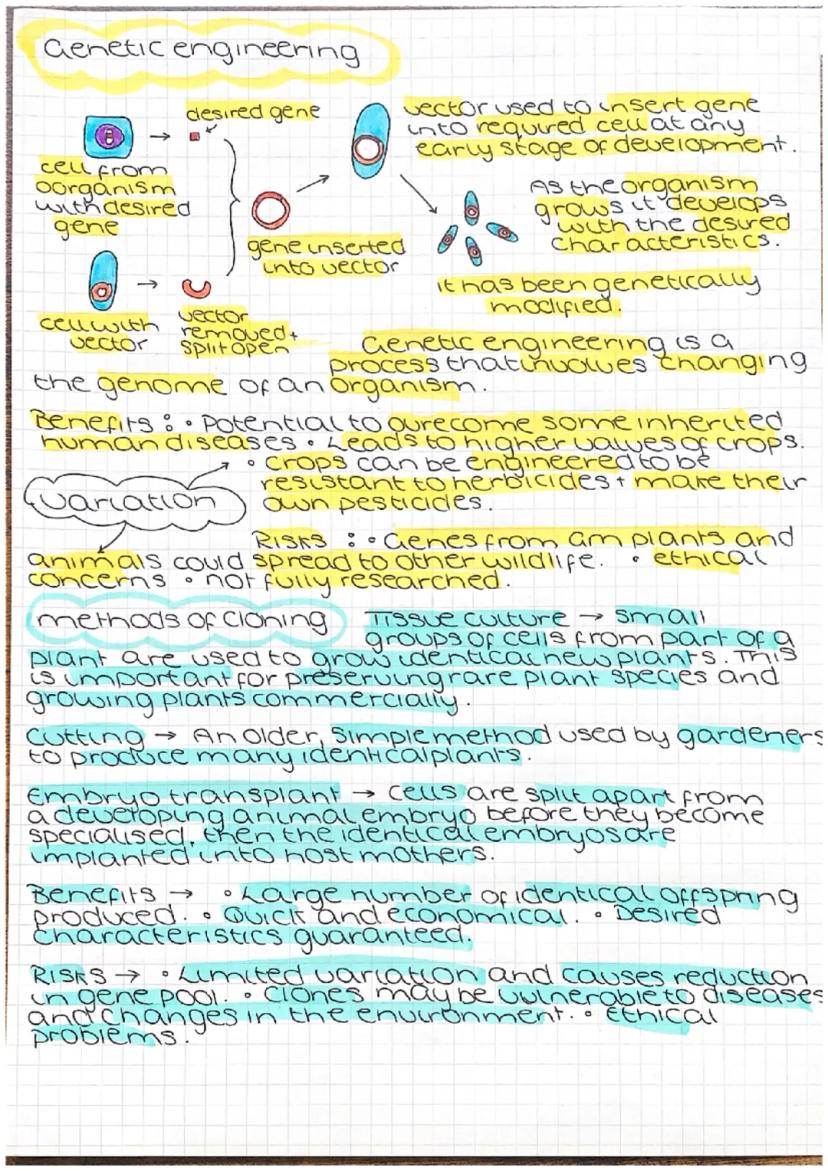 Genetic engineering
desired gene
cell from
oorganism
with desired
gene
cell with
vector
vector
removed +
split open
gene inserted
into vector
vector used to insert gene
into required cell at any
early stage of development.
As the organism
grows it develops
with the desired
characteristics.
it has been genetically
modified.
Genetic engineering is a
process that involves changing
the genome of an organism.
Benefits : • Potential to ovrecome some inherited
human diseases • Leads to higher values of crops.
• crops can be engineered to be
resistant to herbicides + make their
own pesticides.
variation
Risks : • Genes from GM plants and
animals could spread to other wildlife. • ethical
concerns • not fully researched.
methods of cloning
Tissue culture → small
groups of cells from part of a
plant are used to grow identical new plants. This
is important for preserving rare plant species and
growing plants commercially.
Cutting → An older, simple method used by gardeners
to produce many identical plants.
Embryo transplant → cells are split apart from
a developing animal embryo before they become
specialised, then the identical embryos are
implanted into host mothers.
Benefits → • Large number of identical offspring
produced. • Quick and economical. • Desired
characteristics guaranteed.
Risks → • Limited variation and causes reduction
in gene pool. • Clones may be vulnerable to diseases
and changes in the environment. • ethical
problems.